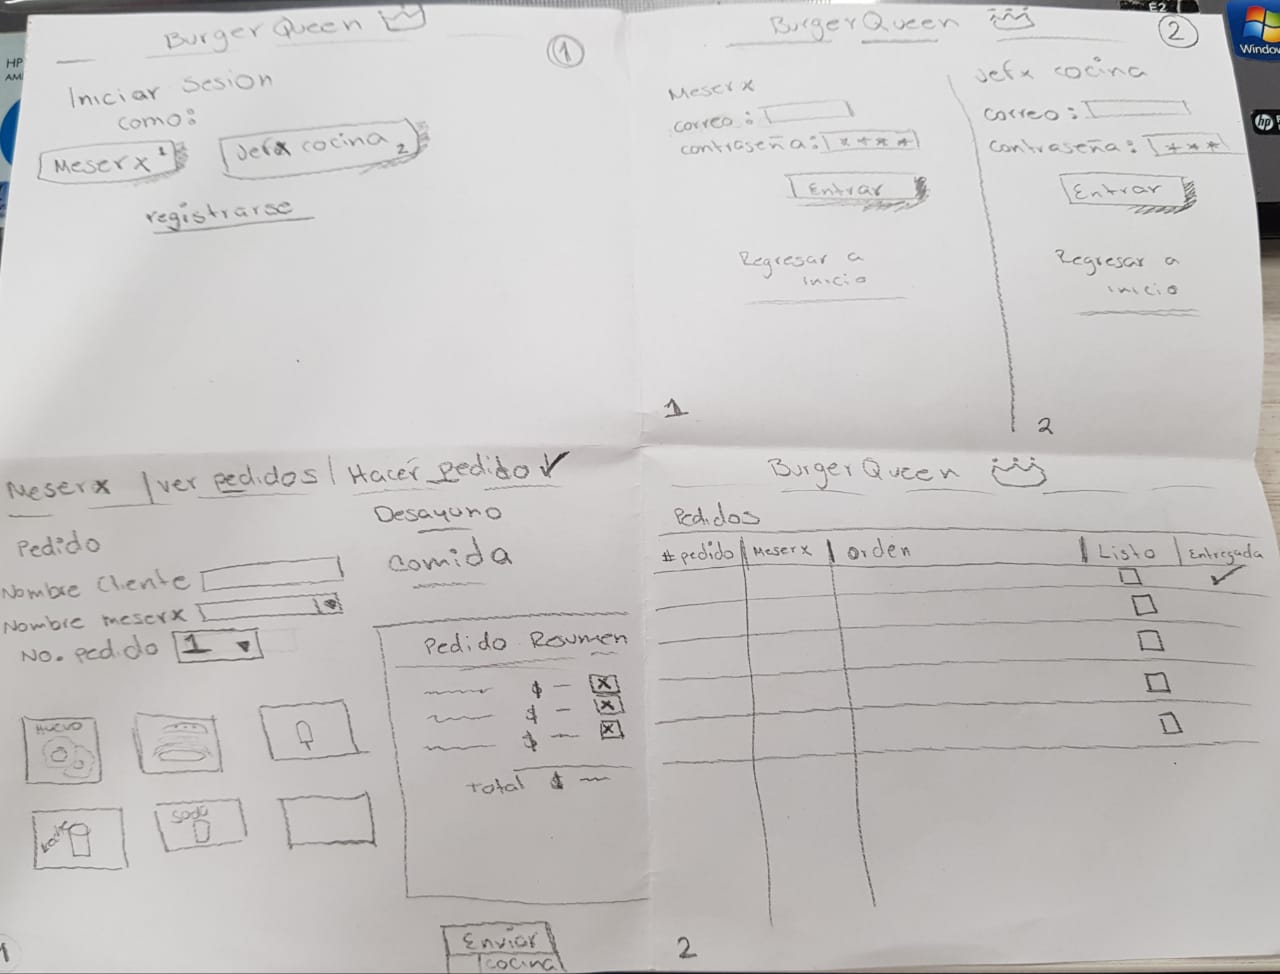 Burger Queen
1
Iniciar Sesion
como:
Meserx 1
Jefx cocina 2
registrarse
Burger Queen
2
Meserx
correo:
contraseña: ****
Entrar
Regresar a
inicio
1
Jefx cocina
correo:
contraseña: ***
Entrar
Regresar a
inicio
2
Meserx | ver pedidos | Hacer pedido ✓
Desayuno
Comida
Pedido
Nombre Cliente
Nombre meserx
No. pedido 1
HUEVO
soda
Pedido Resumen
$ — x
$ — x
$ — x
Total $
Enviar
cocina
1
Burger Queen
Pedidos
# pedido | Meserx | orden | Listo | Entregada
✓
2
HP
AM
E2
Window
hp